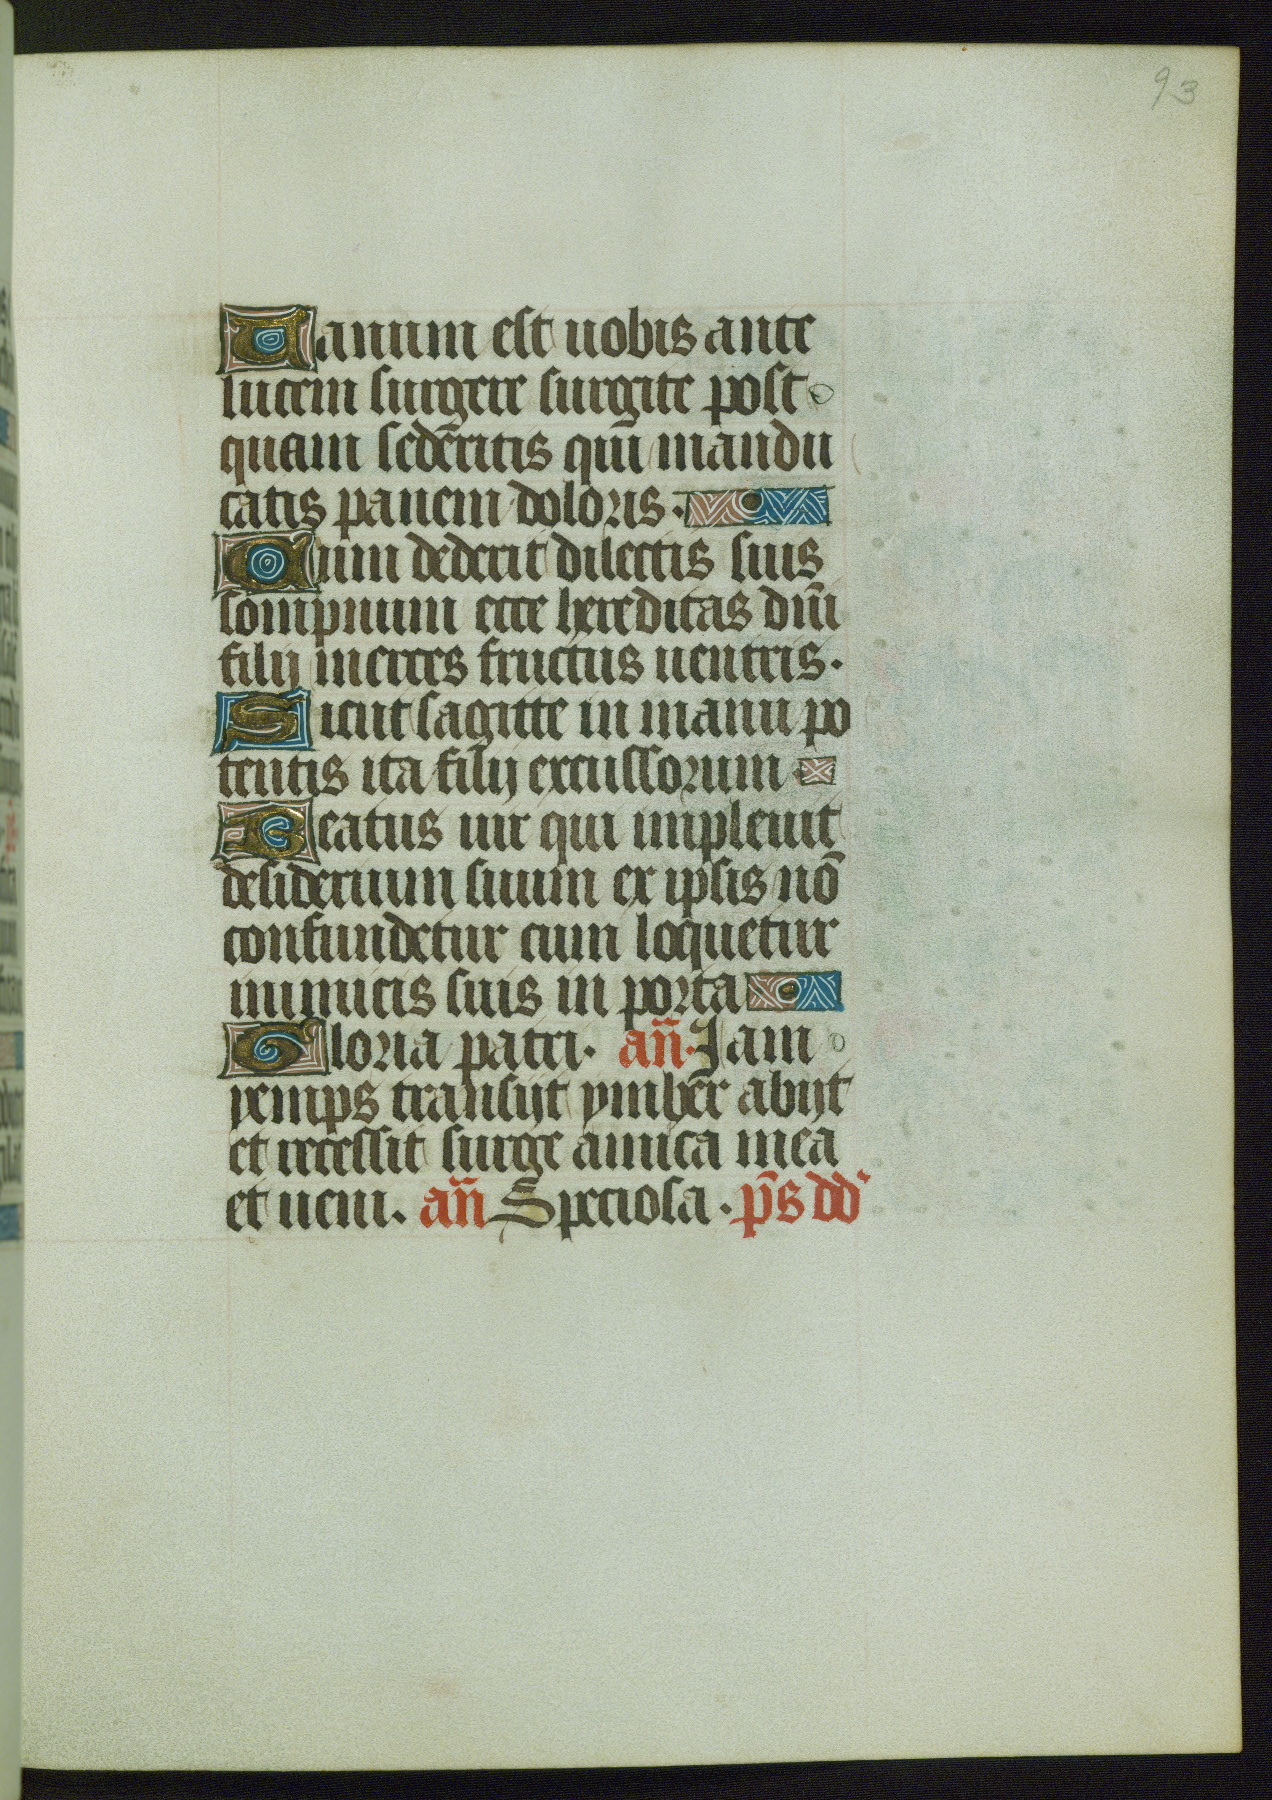 93
Uanum est uobis ante
lucem surgere surgite post
quam sedēritis qui mandu
catis panem doloris.
Cum dederit dilectis suis
sompnum ecce hereditas dnī
filij merces fructus uentris.
Sicut sagitte in manu po
tentis ita filij excussorum
Beatus uir qui impleuit
desiderium suum ex ipsis nō
confundetur cum loquetur
inimicis suis in porta
Gloria patri. an̄. Iam
yemps transijt ymber abijt
et recessit surge amica mea
et ueni. an̄ Speciosa. ps̄ dd